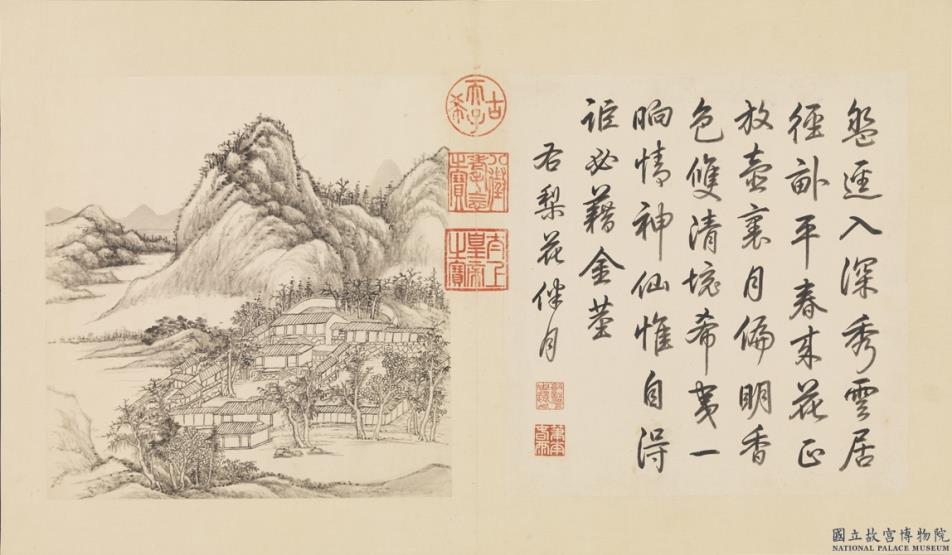 盤入深秀雲居
徑畝平春來花正
放壺裏月偏明香
色雙清境希夷一
晌情神仙惟自得
詎必藉金莖
右梨花伴月
古希天子
八徵耄念之寶
太上皇帝之寶
國立故宮博物院
NATIONAL PALACE MUSEUM